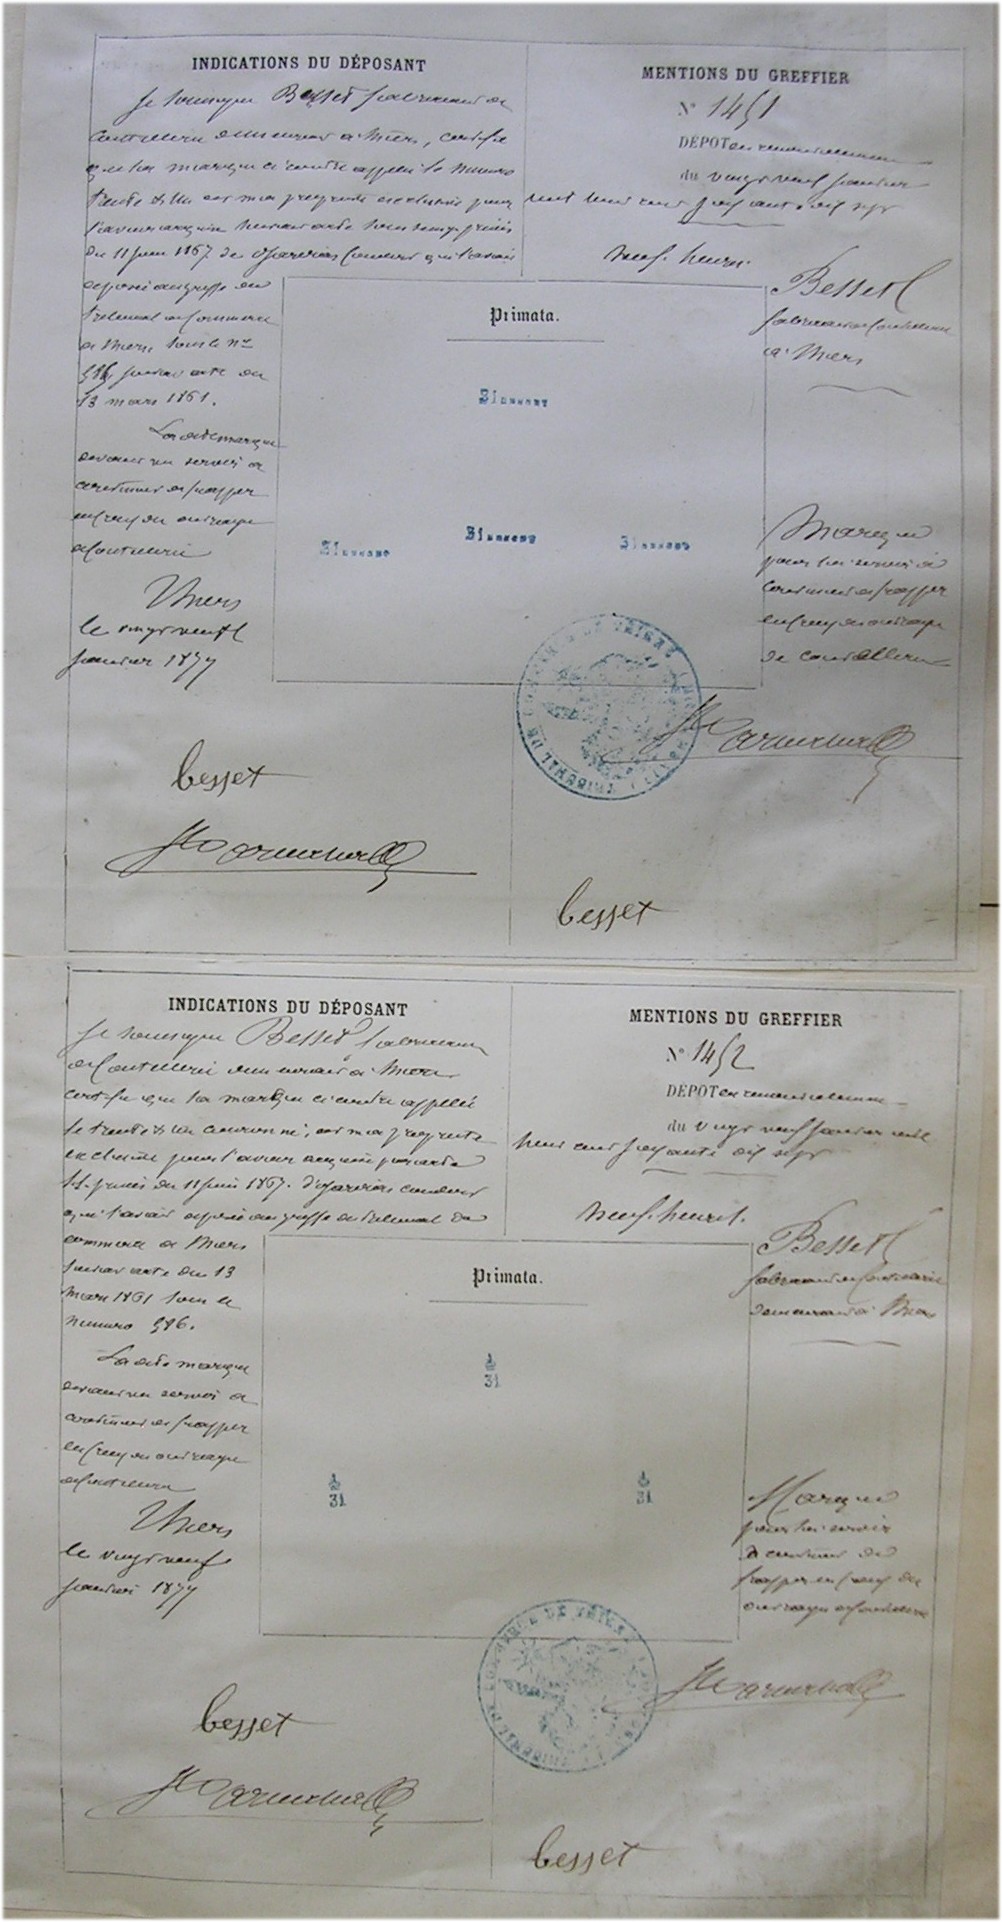 INDICATIONS DU DÉPOSANT
Je soussigné Besset fabricant de
coutellerie demeurant à Thiers, certifie
que la marque ci contre appelée le numéro
trente & un est ma propriété exclusive pour
l'avoir acquise suivant acte sous seing-privés
du 11 Juin 1867 de
qu'il avait
déposée au greffe du
tribunal de Commerce
de Thiers sous le n°
516 suivant acte du
13 mars 1861.
La dite marque
devant me servir à
continuer de frapper
en creux des ouvrages
de coutellerie
Thiers
le vingt neuf
Janvier 1877
besset
MENTIONS DU GREFFIER
N° 1451
DÉPOT en renouvellement
du vingt neuf Janvier
mil huit cent soixante dix sept
neuf heures.
Besset
fabricant de Coutellerie
à Thiers
Primata.
31
31
31
31
Marque
pour lui servir à
continuer de frapper
en creux des ouvrages
de coutellerie
TRIBUNAL DE COMMERCE DE THIERS
besset
INDICATIONS DU DÉPOSANT
Je soussigné Besset fabricant
de Coutellerie demeurant à Thiers
certifie que la marque ci contre appelée
le trente & un couronné, est ma propriété
exclusive pour l'avoir acquise par acte
s.s. privés du 11 Juin 1867.
qu'il avait déposée au greffe du tribunal de
commerce de Thiers
suivant acte du 13
mars 1861 sous le
numéro 516.
La dite marque
devant me servir à
continuer de frapper
en creux des ouvrages
de coutellerie
Thiers
le vingt neuf
Janvier 1877
besset
MENTIONS DU GREFFIER
N° 1452
DÉPOT en renouvellement
du vingt neuf Janvier mil
huit cent soixante dix sept
neuf heures.
Besset
fabricant de Coutellerie
demeurant à Thiers
Primata.
31
31
31
Marque
pour lui servir
à continuer de
frapper en creux des
ouvrages de Coutellerie
TRIBUNAL DE COMMERCE DE THIERS
besset